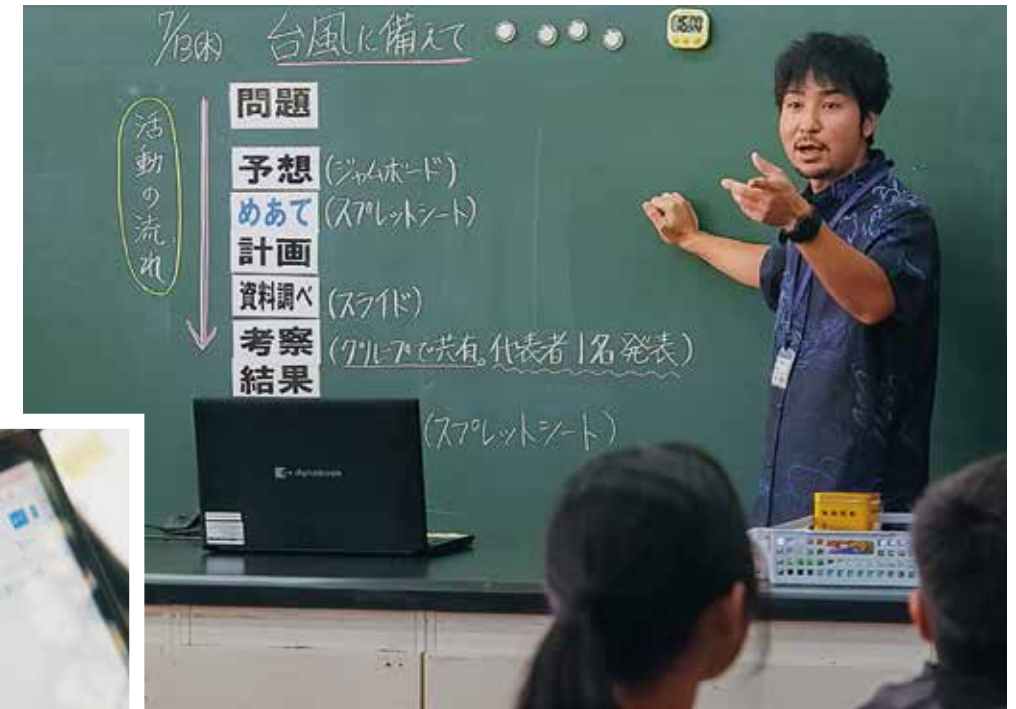 7/13(木) 台風に備えて
15:00
活動の流れ
問題
予想(ジャムボード)
めあて(スプレットシート)
計画
資料調べ(スライド)
考察(グループで共有。代表者1名発表)
結果
(スプレットシート)
dynabook